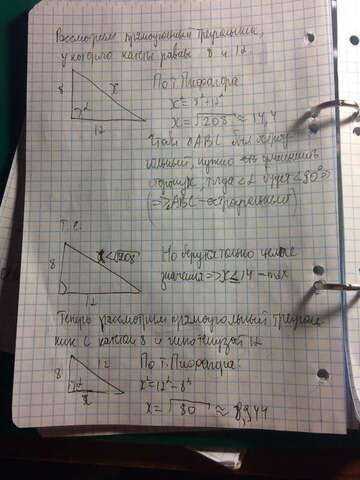 Рассмотрим прямоугольный треугольник,
у которого катеты равны 8 и 12
8
x
α
12
По т. Пифагора
x²=8²+12²
x=√208 ≈ 14,4
Чтобы △ABC был остроу
гольный, нужно уменьшить
сторону x, тогда <α будет <90°
(=>△ABC-остроугольный)
Т.е.
8
x<√208
12
Но беру только целые
значения => x≤14 - max
Теперь рассмотрим прямоугольный треуголь
ник с катетом 8 и гипотенузой 12
8
12
α
x
По т. Пифагора:
x²=12²-8²
x=√80 ≈ 8,944